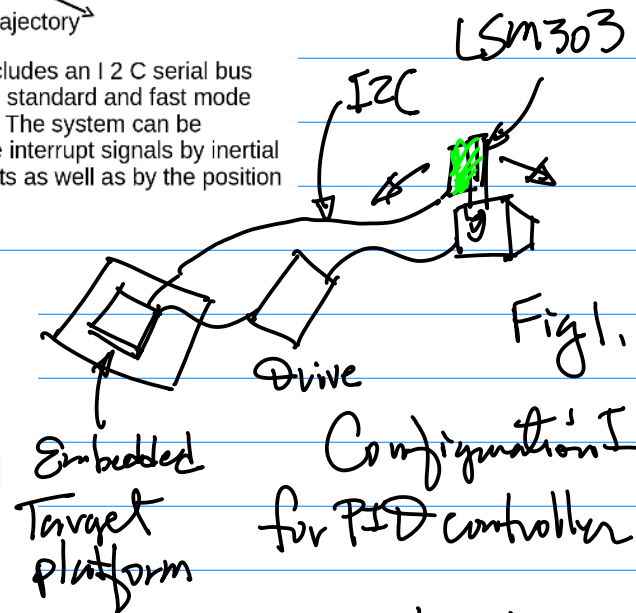 ajectory
cludes an I 2 C serial bus
standard and fast mode
The system can be
e interrupt signals by inertial
ts as well as by the position
LSM303
I2C
Fig 1.
Drive
Embedded
Target
platform
Configuration I
for PID controller